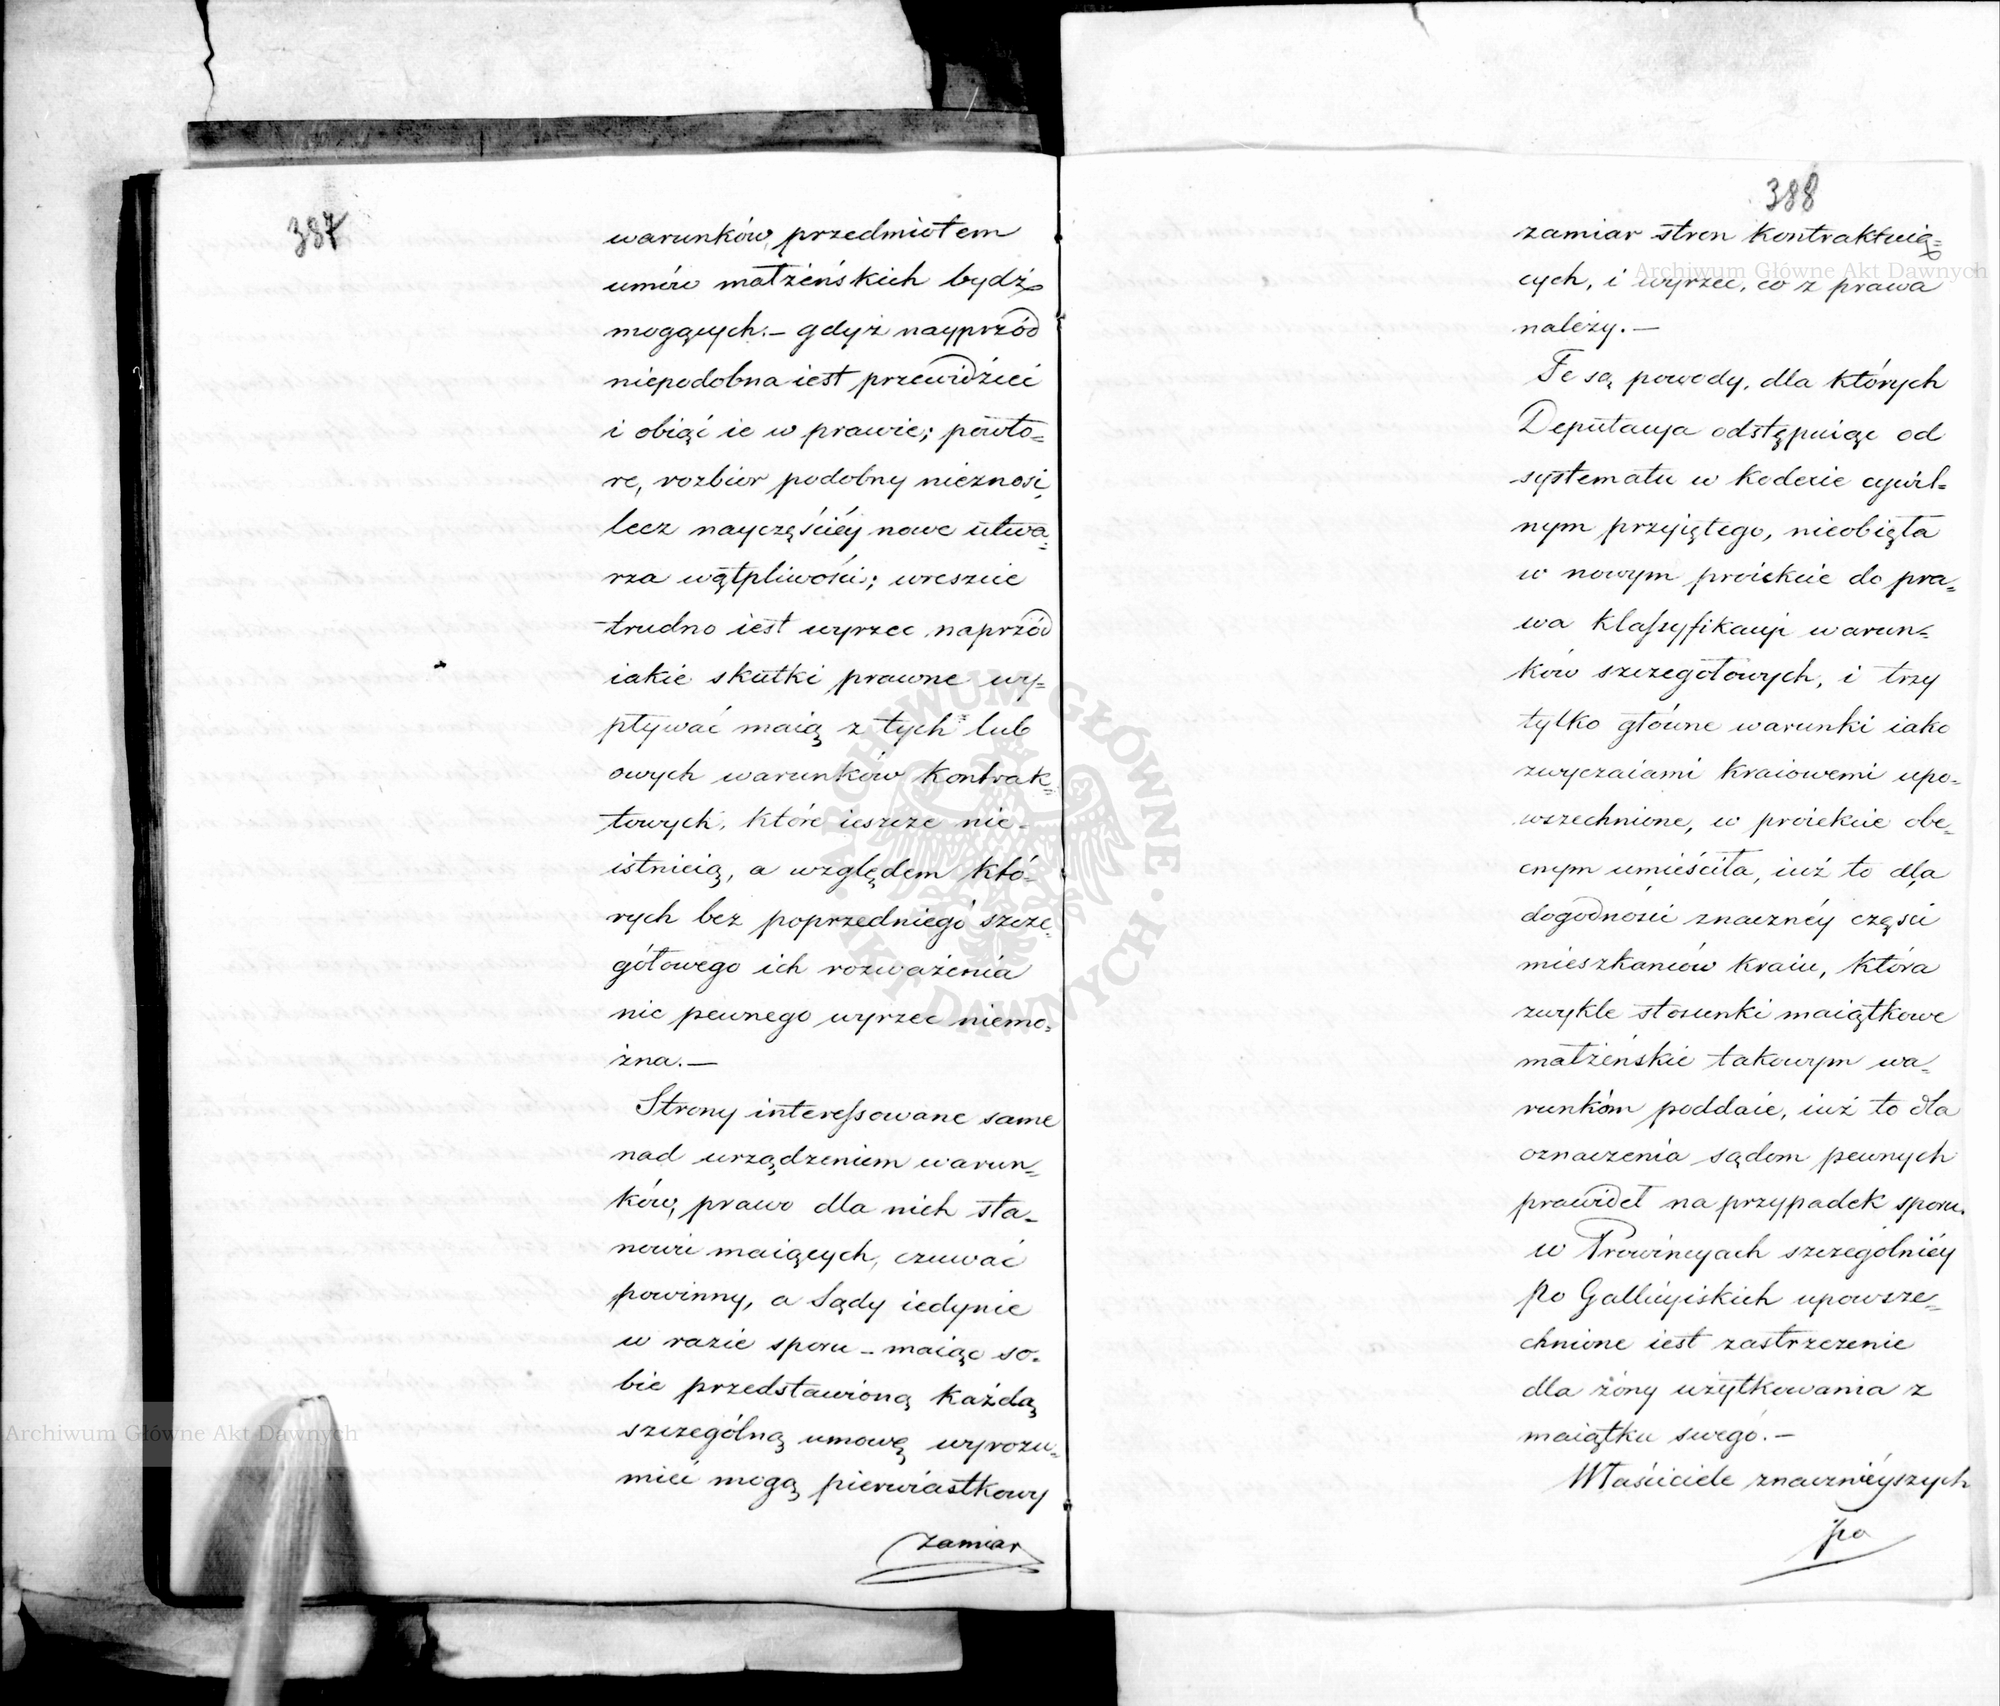 387
warunków, przedmiotem
umów małżeńskich bydź
mogących.— gdyż nayprzód
niepodobna iest przewidzieć
i obiąć ie w prawie; powtó=
re, rozbiór podobny nieznosi,
lecz nayczęściéy nowe utwa=
rza wątpliwości; wreszcie
trudno iest wyrzec naprzód
iakie skutki prawne wy=
pływać maią z tych lub
owych warunków kontrak=
towych, które ieszcze nie=
istnieią, a względem któ=
rych bez poprzedniego szcze=
gółowego ich rozważenia
nic pewnego wyrzec niemo=
żna.—
Strony interessowane same
nad urządzeniem warun=
ków, prawo dla nich sta=
nowić maiących, czuwać
powinny, a Sądy iedynie
w razie sporu – maiąc so=
bie przedstawioną każdą
szczególną umowę wyrozu=
mieć mogą pierwiastkowy
zamiar
388
zamiar stron kontraktuią=
cych, i wyrzec, co z prawa
należy.—
Te są powody, dla których
Deputacya odstępuiąc od
systematu w kodexie cywil=
nym przyiętego, nieobięła
w nowym proiekcie do pra=
wa klassyfikacyi warun=
ków szczegółowych, i trzy
tylko główne warunki iako
zwyczaiami kraiowemi upo=
wszechnione, w proiekcie obe=
cnym umieściła, iuż to dla
dogodności znacznéy części
mieszkańców kraiu, która
zwykle stosunki maiątkowe
małżeńskie takowym wa=
runkóm poddaie, iuż to dla
oznaczenia sądom pewnych
prawideł na przypadek sporu.
w Prowincyach szczególniéy
po Gallicyiskich upowsze=
chnione iest zastrzeżenie
dla żony użytkowania z
maiątku swego.—
Właściciele znacznieyszych
po
Archiwum Główne Akt Dawnych
Archiwum Główne Akt Dawnych
ARCHIWUM GŁÓWNE AKT DAWNYCH